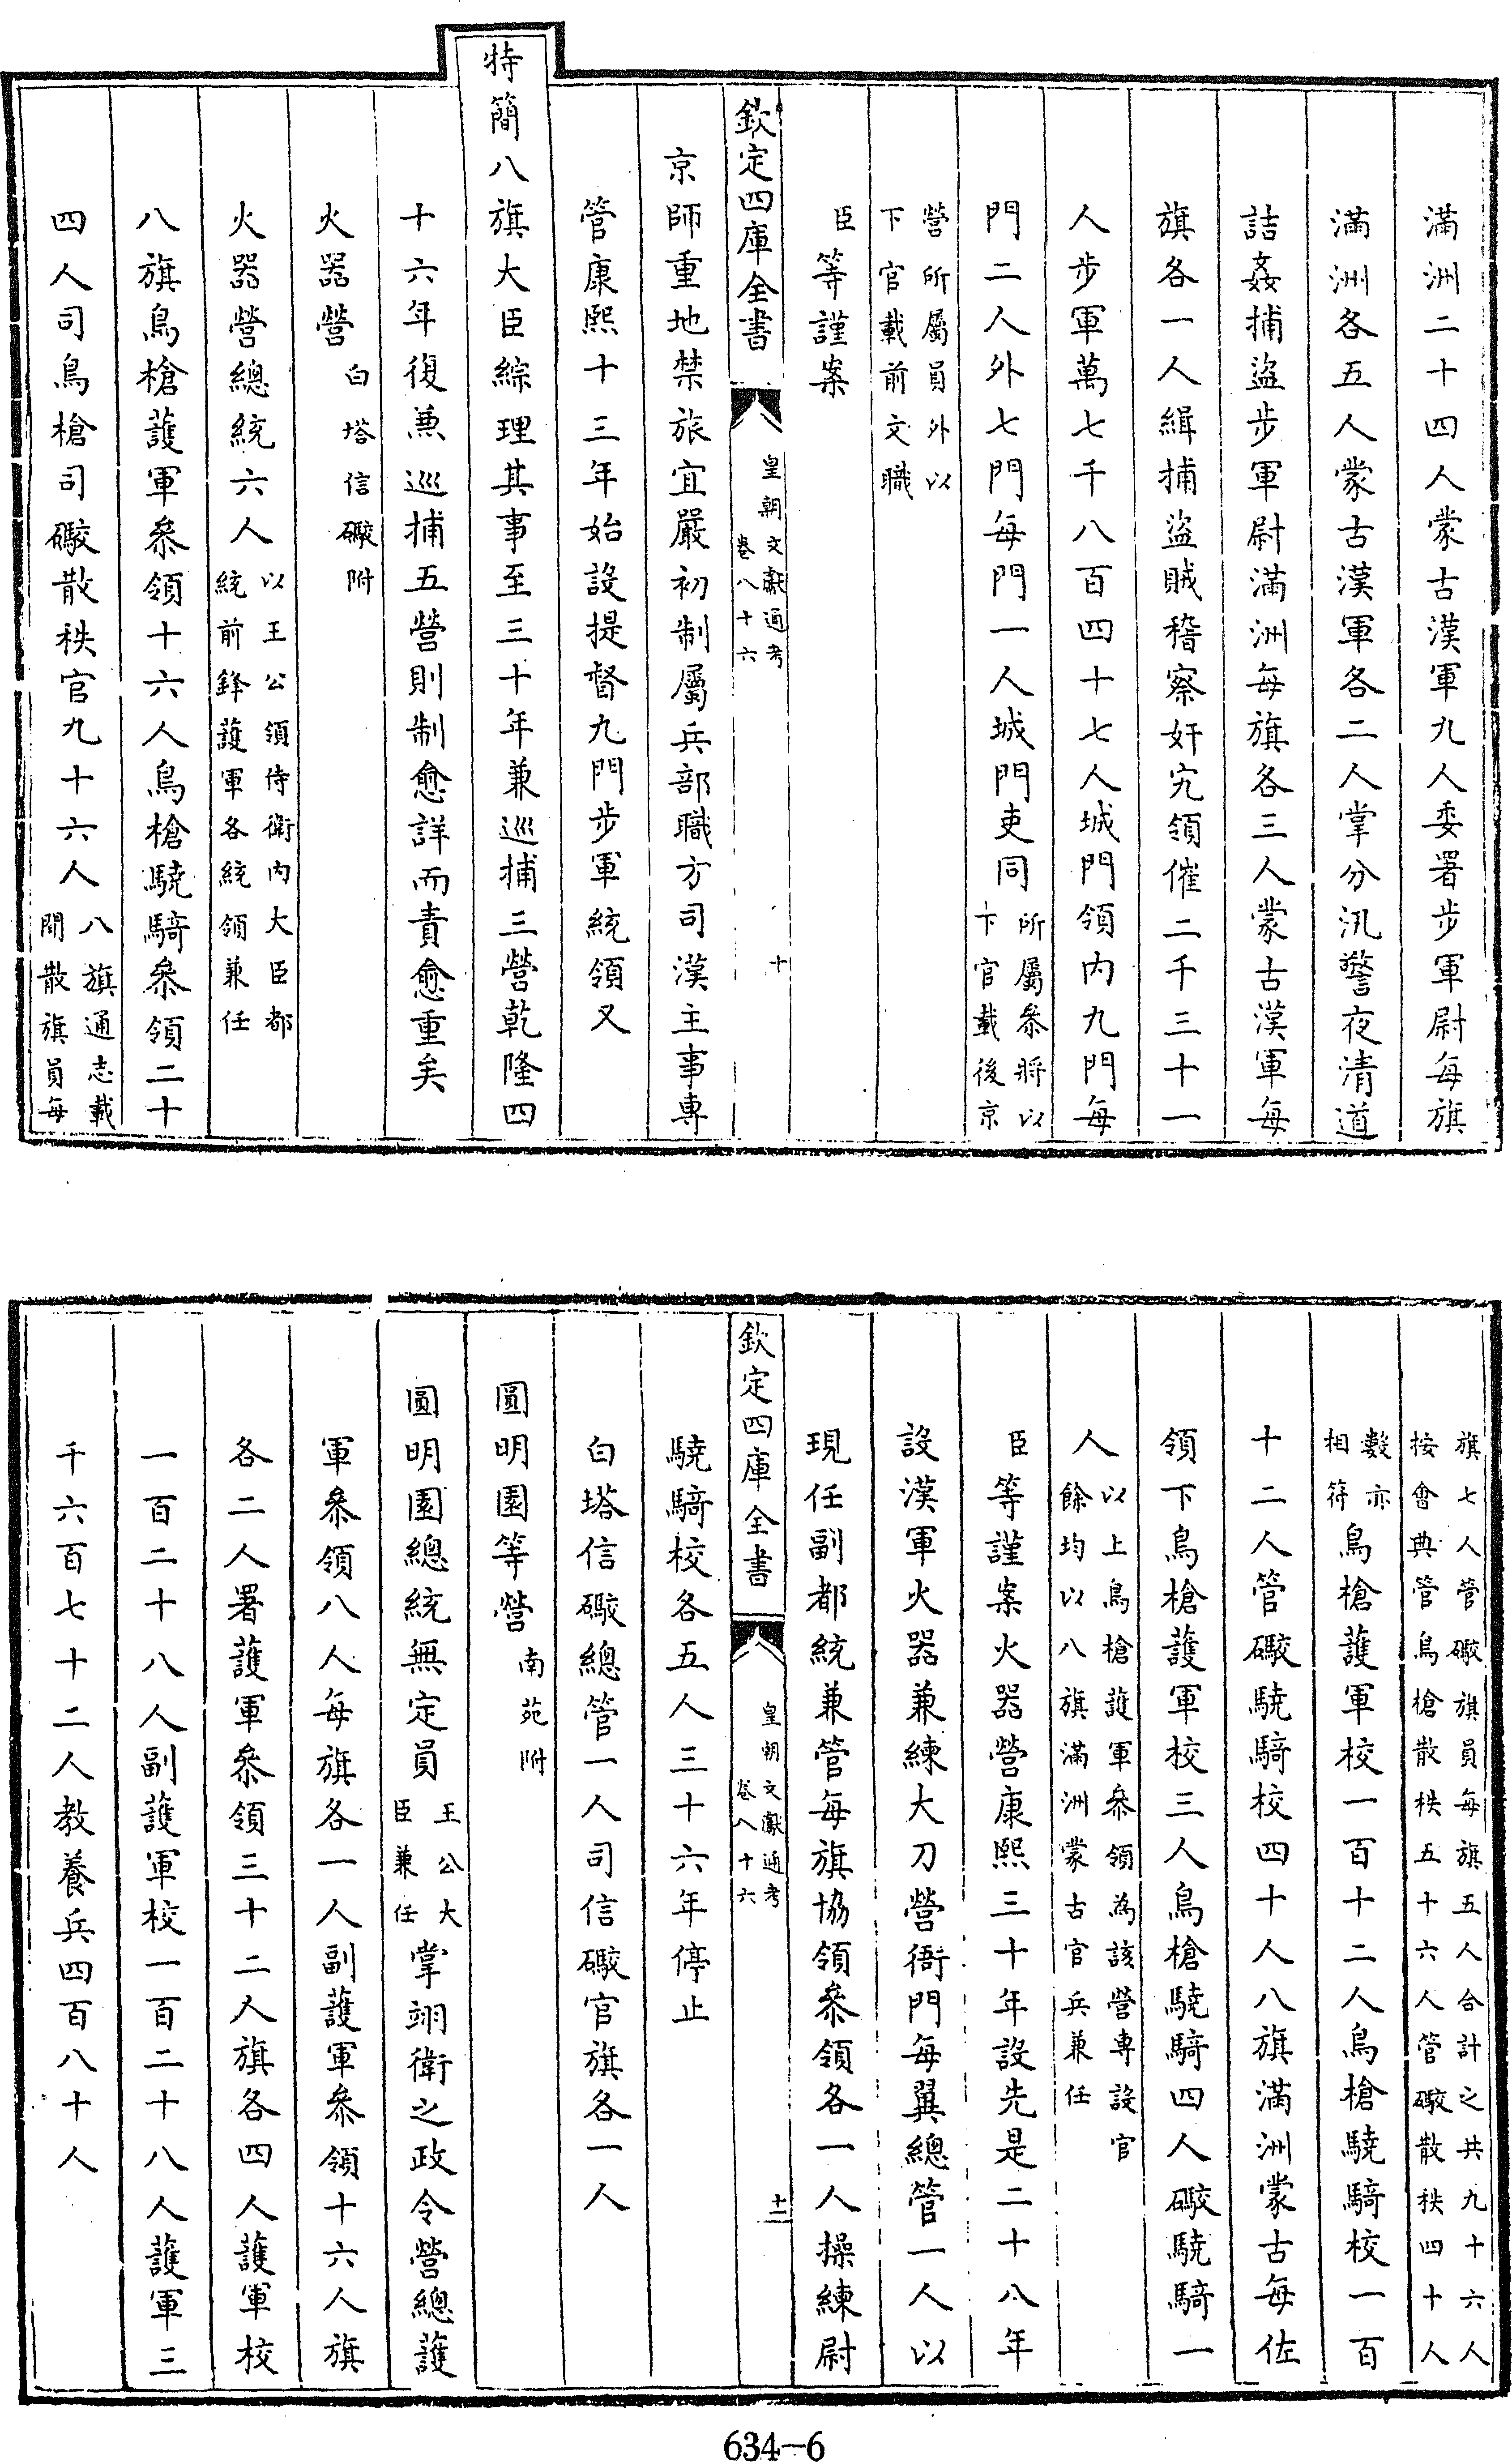 滿洲二十四人蒙古漢軍九人委署步軍尉每旗
滿洲各五人蒙古漢軍各二人掌分汛警夜清道
詰姦捕盜步軍尉滿洲每旗各三人蒙古漢軍每
旗各一人緝捕盜賊稽察奸宄領催二千三十一
人步軍萬七千八百四十七人城門領內九門每
門二人外七門每門一人城門吏同所屬參將以
下官載後京
營所屬員外以
下官載前文職
臣等謹案
欽定四庫全書
皇朝文獻通考
卷八十六
十
京師重地禁旅宜嚴初制屬兵部職方司漢主事專
管康熙十三年始設提督九門步軍統領又
特簡八旗大臣綜理其事至三十年兼巡捕三營乾隆四
十六年復兼巡捕五營則制愈詳而責愈重矣
火器營白塔信礮附
火器營總統六人以王公領侍衛內大臣都
統前鋒護軍各統領兼任
八旗鳥槍護軍參領十六人鳥槍驍騎參領二十
四人司鳥槍司礮散秩官九十六人八旗通志載
閒散旗員每
旗七人管礮旗員每旗五人合計之共九十六人
按會典管鳥槍散秩五十六人管礮散秩四十人
數亦
相符鳥槍護軍校一百十二人鳥槍驍騎校一百
十二人管礮驍騎校四十人八旗滿洲蒙古每佐
領下鳥槍護軍校三人鳥槍驍騎四人礮驍騎一
人以上鳥槍護軍參領為該營專設官
餘均以八旗滿洲蒙古官兵兼任
臣等謹案火器營康熙三十年設先是二十八年
設漢軍火器兼練大刀營衙門每翼總管一人以
現任副都統兼管每旗協領參領各一人操練尉
欽定四庫全書
皇朝文獻通考
卷八十六
十一
驍騎校各五人三十六年停止
白塔信礮總管一人司信礮官旗各一人
圓明園等營南苑附
圓明園總統無定員王公大
臣兼任掌翊衛之政令營總護
軍參領八人每旗各一人副護軍參領十六人旗
各二人署護軍參領三十二人旗各四人護軍校
一百二十八人副護軍校一百二十八人護軍三
千六百七十二人教養兵四百八十人
634-6